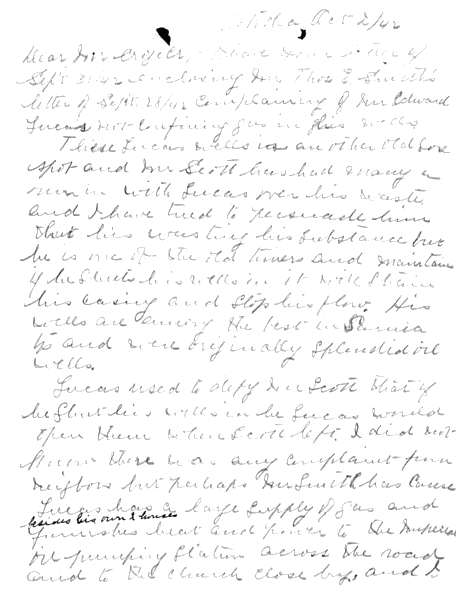 Petrolia, Oct 2/42
Dear Mr Crozier, - I have your letter of
Sept. 30/42 enclosing Mr. Thos E. Smith's
letter of Sept. 28/42 complaining of Mr Edward
Lucas not confining gas in his wells
These Lucas wells is another old sore
spot and Mr Scott has had many a
run in with Lucas over his waste
and I have tried to persuade him
that he is wasting his substance but
he is one of the old timers and maintains
if he shuts his wells in it will strain
his casing and stop his flow. His
wells are among the best in Sarnia
Tp and were originally splendid oil
wells.
Lucas used to defy Mr Scott that if
he shut his wells in he Lucas would
open them when Scott left. I did not
know there was any complaint from
neigbors but perhaps Mr Smith has cause
Lucas has a large supply of gas and
besides his own 2 houses
furnishes heat and power to the Imperial
oil pumping station across the road
and to the church close by, and to